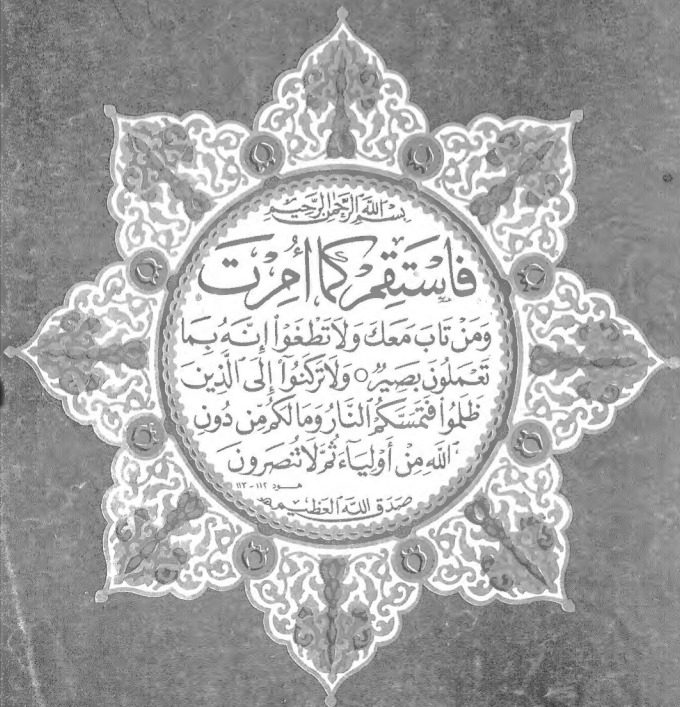 بِسْمِ اللَّهِ الرَّحْمٰنِ الرَّحِيمِ
فَاسْتَقِمْ كَمَا أُمِرْتَ
وَمَنْ تَابَ مَعَكَ وَلَا تَطْغَوْا إِنَّهُ بِمَا
تَعْمَلُونَ بَصِيرٌ ○ وَلَا تَرْكَنُوٓا إِلَى الَّذِينَ
ظَلَمُوا فَتَمَسَّكُمُ النَّارُ وَمَا لَكُم مِن دُونِ
اللَّهِ مِنْ أَوْلِيَآءَ ثُمَّ لَا تُنصَرُونَ
هود ١١٢ - ١١٣
صدق الله العظيم